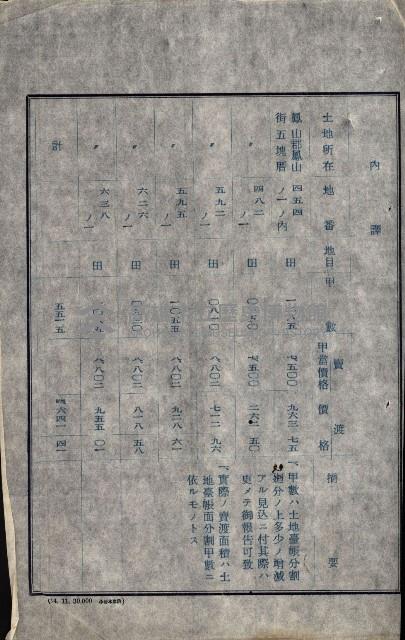 內譯
土地所在 地番 地目 甲數 賣渡 甲當價格 價格 摘要
鳳山郡鳳山街五塊厝 四五四ノ一ノ內 田 七五〇〇 九六三 七五
〃 四八二ノ一 田 七五〇〇 五〇
〃 五九二ノ一 田 〇八一〇 八八〇二 七一二 九六
〃 五九五ノ一 田 一〇五五 八八〇二 九二八 六一
〃 六二六 田 八八〇二 八一八 五八
〃 六三八ノ一 田 八八〇二 九五五 〇一
計 五五一五 四六四一 四一
一、甲數ハ土地臺帳分割
測分ノ上多少ノ增減
アル見込ニ付其際ハ
更メテ御報告可致
一、實際ノ賣渡面積ハ土
地臺帳面分割甲數ニ
依ルモノトス